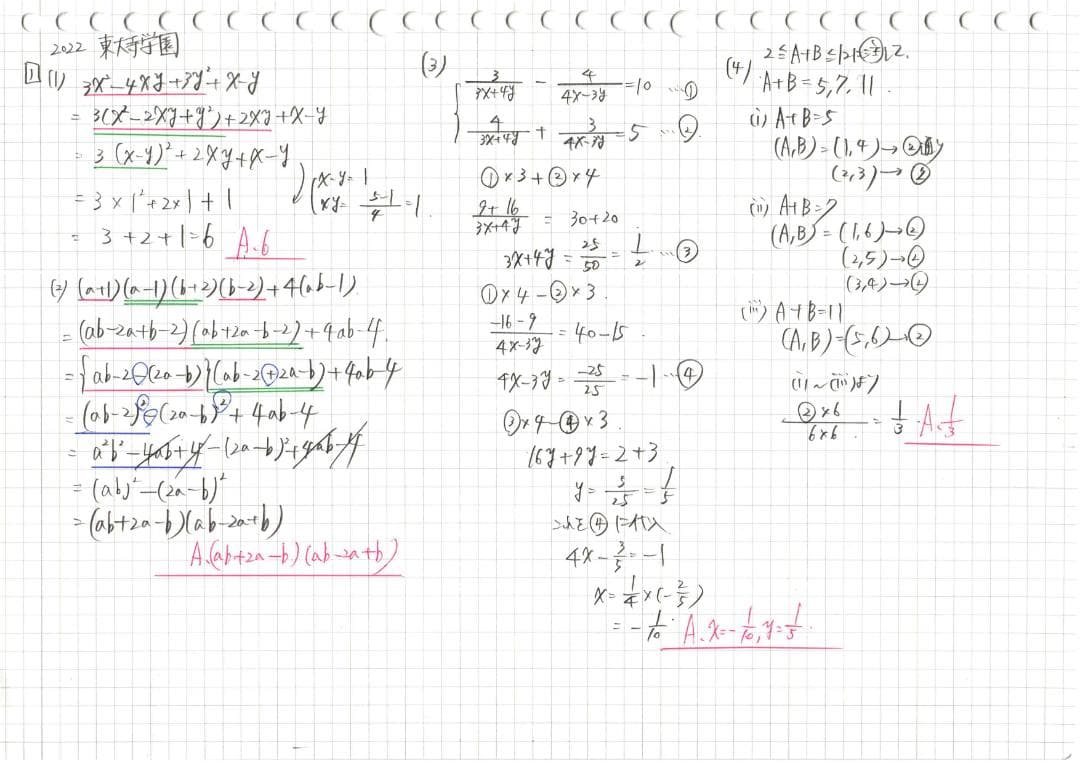 2022 東大寺学園
1 (1) 3x²-4xy+3y²+x-y
= 3(x²-2xy+y²)+2xy+x-y
= 3(x-y)²+2xy+x-y
x-y=1
xy=\frac{5-1}{4}=1
= 3×1²+2×1+1
= 3+2+1=6 A.6
(2) (a+1)(a-1)(b+2)(b-2)+4(ab-1)
=(ab-2a+b-2)(ab+2a-b-2)+4ab-4.
={ab-2-(2a-b)}(ab-2+2a-b)+4ab-4
=(ab-2)²-(2a-b)²+4ab-4
= a²b²-4ab+4-(2a-b)²+4ab-4
=(ab)²-(2a-b)²
=(ab+2a-b)(ab-2a+b)
A.(ab+2a-b)(ab-2a+b)
(3)
\frac{3}{3x+4y} - \frac{4}{4x-3y}=10 …①
\frac{4}{3x+4y} + \frac{3}{4x-3y}=5 …②
①×3+②×4
\frac{9+16}{3x+4y} = 30+20
3x+4y=\frac{25}{50}=\frac{1}{2} …③
①×4-②×3.
\frac{-16-9}{4x-3y}=40-15
4x-3y=\frac{-25}{25}=-1…④
③×4-④×3.
16y+9y=2+3
y=\frac{5}{25}=\frac{1}{5}
これを④に代入
4x-\frac{3}{5}=-1
x=\frac{1}{4}×(-\frac{2}{5})
=-\frac{1}{10}. A.x=-\frac{1}{10},y=\frac{1}{5}.
(4) 2≦A+B≦12に注意して.
A+B=5,7,11.
(i) A+B=5
(A,B)=(1,4)→②通り
(2,3)→②
(ii) A+B=7
(A,B)=(1,6)→②
(2,5)→②
(3,4)→②
(iii) A+B=11
(A,B)=(5,6)→②
(i)~(iii)より
\frac{②×6}{6×6}=\frac{1}{3} A.\frac{1}{3}